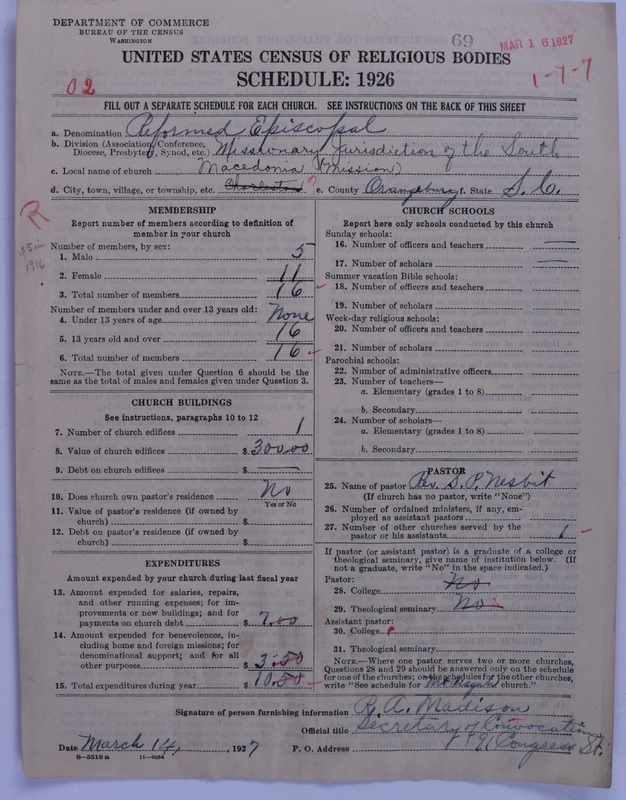 DEPARTMENT OF COMMERCE
BUREAU OF THE CENSUS
WASHINGTON
69
MAR 16 1927
UNITED STATES CENSUS OF RELIGIOUS BODIES
SCHEDULE: 1926
02
1-7-7
FILL OUT A SEPARATE SCHEDULE FOR EACH CHURCH. SEE INSTRUCTIONS ON THE BACK OF THIS SHEET
a. Denomination Reformed Episcopal
b. Division (Association, Conference, Diocese, Presbytery, Synod, etc.) Missionary Jurisdiction of the South
c. Local name of church Macedonia (Mission)
d. City, town, village, or township, etc. Charleston ? e. County Orangeburg f. State S.C.
R
1916
MEMBERSHIP
Report number of members according to definition of
member in your church
Number of members, by sex:
1. Male 5
2. Female 11
3. Total number of members 16
Number of members under and over 13 years old:
4. Under 13 years of age None
5. 13 years old and over 16
6. Total number of members 16
NOTE.—The total given under Question 6 should be the
same as the total of males and females given under Question 3.
CHURCH BUILDINGS
See instructions, paragraphs 10 to 12
7. Number of church edifices 1
8. Value of church edifices $ 300.00
9. Debt on church edifices $
10. Does church own pastor's residence No
Yes or No
11. Value of pastor's residence (if owned by
church) $
12. Debt on pastor's residence (if owned by
church) $
EXPENDITURES
Amount expended by your church during last fiscal year
13. Amount expended for salaries, repairs,
and other running expenses; for im-
provements or new buildings; and for
payments on church debt $ 7.00
14. Amount expended for benevolences, in-
cluding home and foreign missions; for
denominational support; and for all
other purposes $ 3.50
15. Total expenditures during year $ 10.50
CHURCH SCHOOLS
Report here only schools conducted by this church
Sunday schools:
16. Number of officers and teachers
17. Number of scholars
Summer vacation Bible schools:
18. Number of officers and teachers
19. Number of scholars
Week-day religious schools:
20. Number of officers and teachers
21. Number of scholars
Parochial schools:
22. Number of administrative officers
23. Number of teachers—
a. Elementary (grades 1 to 8)
b. Secondary
24. Number of scholars—
a. Elementary (grades 1 to 8)
b. Secondary
PASTOR
25. Name of pastor Rev. S. P. Nesbit
(If church has no pastor, write "None")
26. Number of ordained ministers, if any, em-
ployed as assistant pastors
27. Number of other churches served by the
pastor or his assistants 1
If pastor (or assistant pastor) is a graduate of a college or
theological seminary, give name of institution below. (If
not a graduate, write "No" in the space indicated.)
Pastor:
28. College No
29. Theological seminary No
Assistant pastor:
30. College
31. Theological seminary
NOTE.—Where one pastor serves two or more churches,
Questions 28 and 29 should be answered only on the schedule
for one of the churches; on the schedules for the other churches,
write "See schedule for Mt Pisgah church."
Signature of person furnishing information R. A. Madison
Official title Secretary of Convocation
Date March 14, 1927 P. O. Address Congress St.
8—5518 a 11—9554